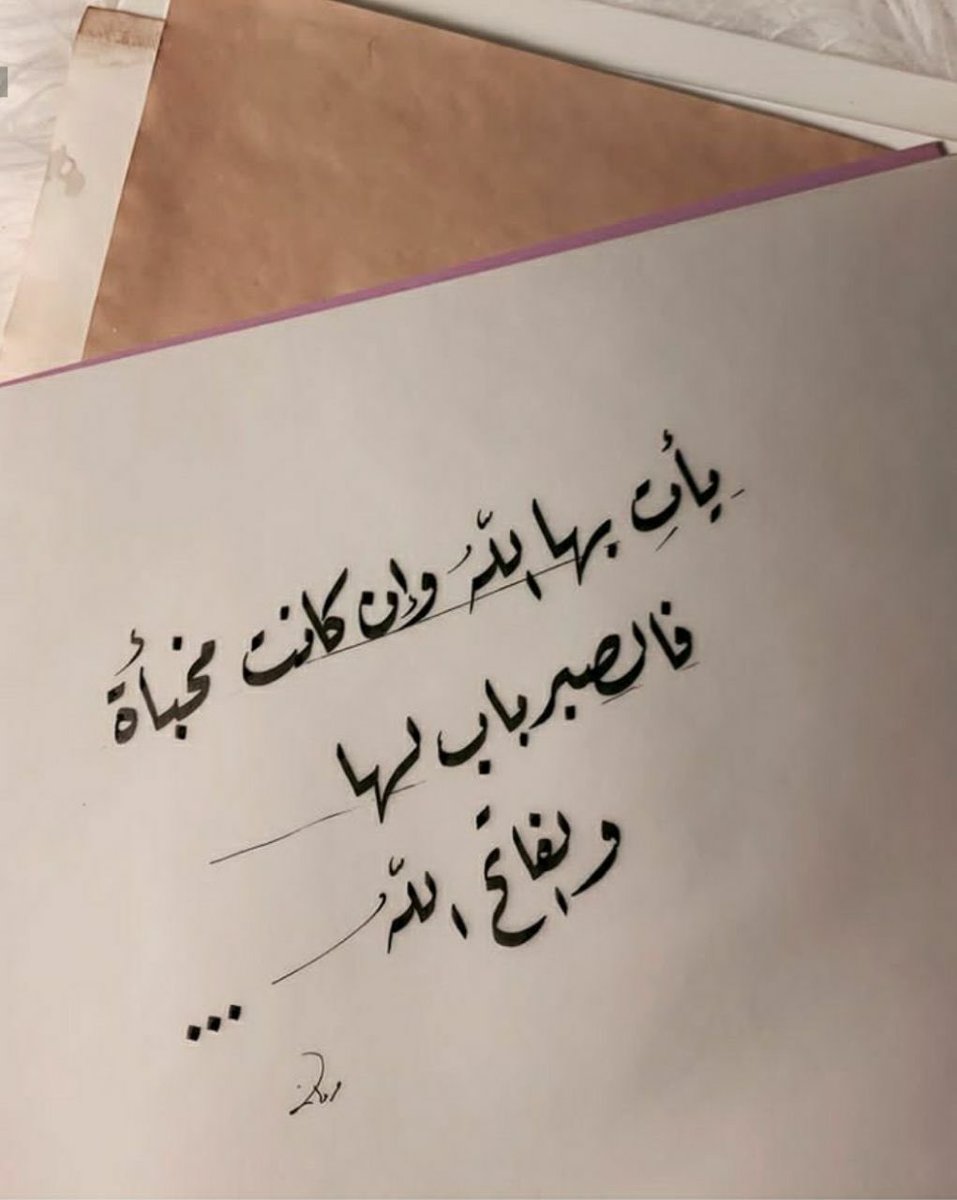 يأتِ بها اللّهُ وإن كانت مخبأةً
فالصبر باب لها
والفاتح اللّهُ
...